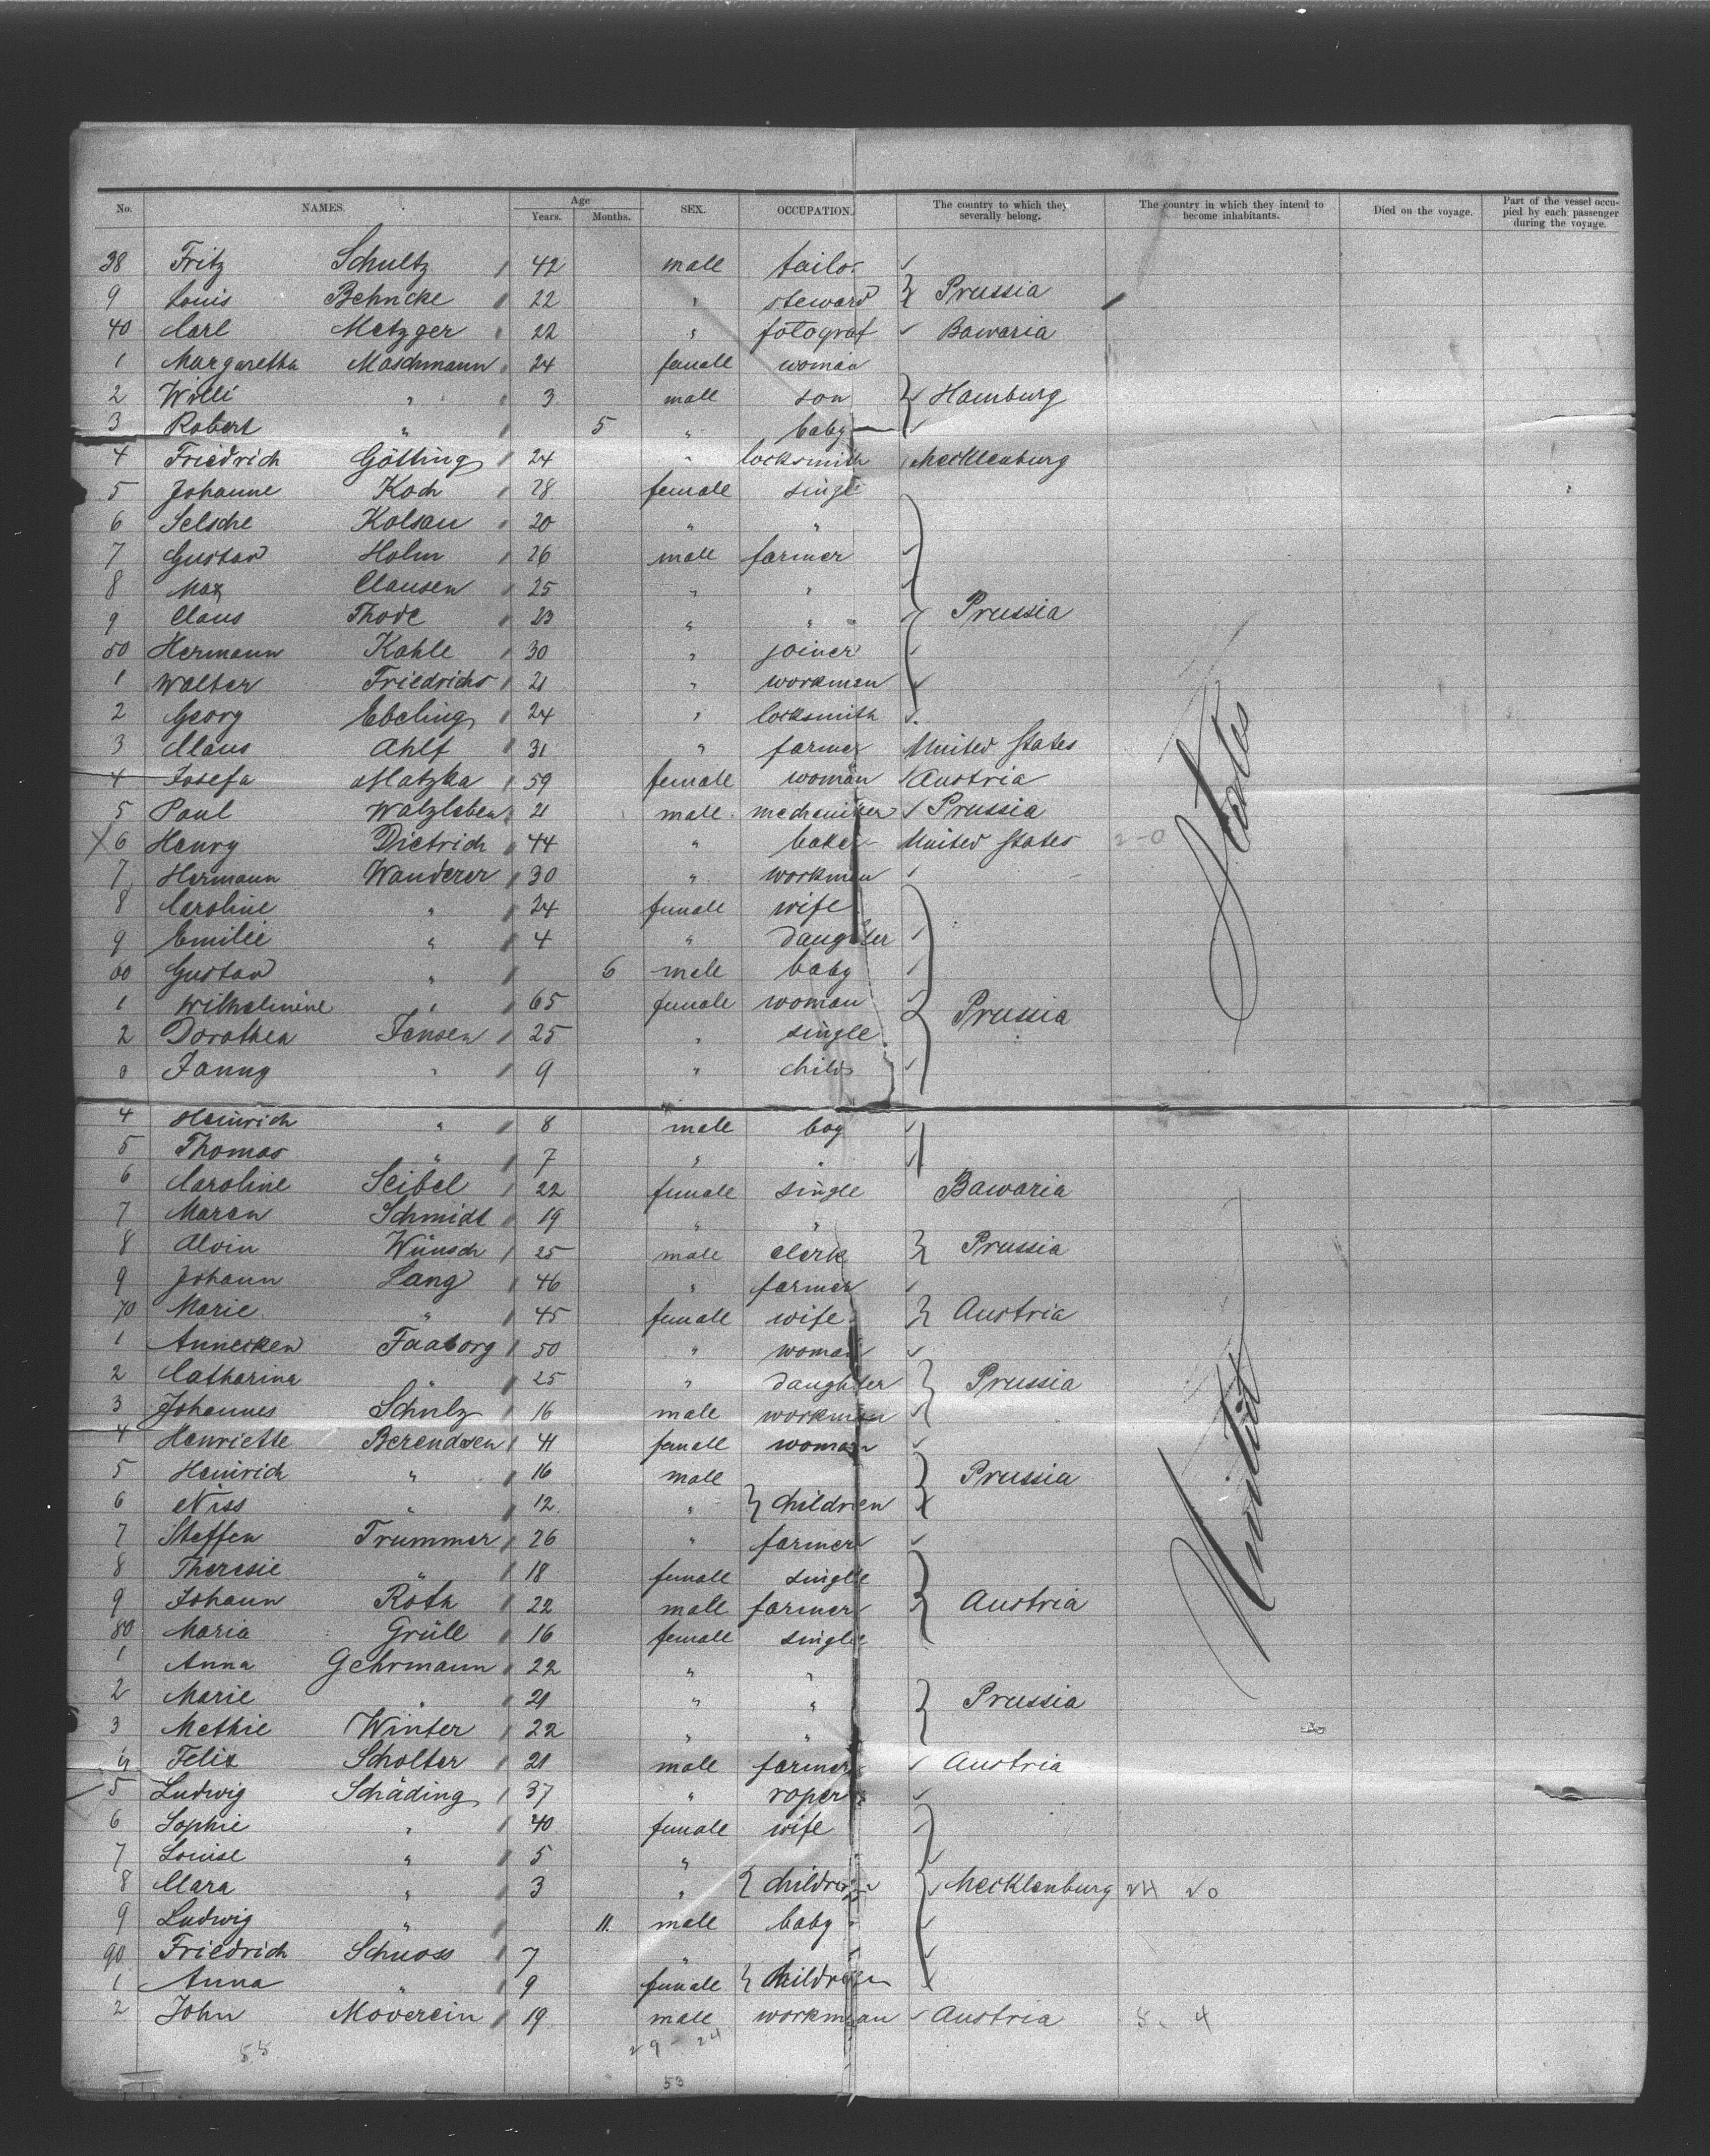 No. NAMES. Age Years. Months. SEX. OCCUPATION. The country to which they severally belong. The country in which they intend to become inhabitants. Died on the voyage. Part of the vessel occupied by each passenger during the voyage.
38 Fritz Schultz 42 male tailor
9 Louis Behncke 22 " steward Prussia
40 Carl Metzger 22 " fotograf Bawaria
1 Margaretha Maschmann 24 female woman
2 Willi " 3 male son Hamburg
3 Robert " 5 " baby
4 Friedrich Götting 24 " locksmith Mecklenburg
5 Johanne Koch 28 female single
6 Selsche Kolsau 20 " "
7 Gustav Holm 26 male farmer
8 Max Clausen 25 " "
9 Claus Thode 23 " " Prussia
50 Hermann Kahle 30 " joiner
1 Walter Friedrichs 21 " workman
2 Georg Ebeling 24 " locksmith
3 Claus Ahlf 31 " farmer United States
4 Josefa Matzka 59 female woman Austria
5 Paul Walzleben 21 male mechaniker Prussia
6 Henry Dietrich 44 " baker United States 2-0
7 Hermann Wanderer 30 " workman
8 Caroline " 24 female wife
9 Emilie " 4 " daughter
60 Gustav " 6 male baby
1 Wilhelmine " 65 female woman Prussia
2 Dorothea Jensen 25 " single
3 Fanny " 9 " child
4 Heinrich " 8 male boy
5 Thomas " 7 " "
6 Caroline Seibel 22 female single Bawaria
7 Maren Schmidt 19 " "
8 Alvin Wünsch 25 male clerk Prussia
9 Johann Lang 46 " farmer
70 Marie " 45 female wife Austria
1 Annecken Faaborg 50 " woman
2 Catharina " 25 " daughter Prussia
3 Johannes Schulz 16 male workman
4 Henriette Berendsen 41 female woman
5 Heinrich " 16 male Prussia
6 Niss " 12 " children
7 Steffen Trummer 26 " farmer
8 Theresie " 18 female single
9 Johann Roth 22 male farmer Austria
80 Maria Grüll 16 female single
1 Anna Gehrmann 22 " "
2 Marie " 21 " " Prussia
3 Methie Winter 22 " "
4 Felix Scholter 21 male farmer Austria
5 Ludwig Schäding 37 " roper
6 Sophie " 40 female wife
7 Louise " 5 "
8 Clara " 3 " children Mecklenburg
9 Ludwig " 11 male baby
90 Friedrich Schuoss 7 "
1 Anna " 9 female children
2 John Moverein 19 male workman Austria
United States
53